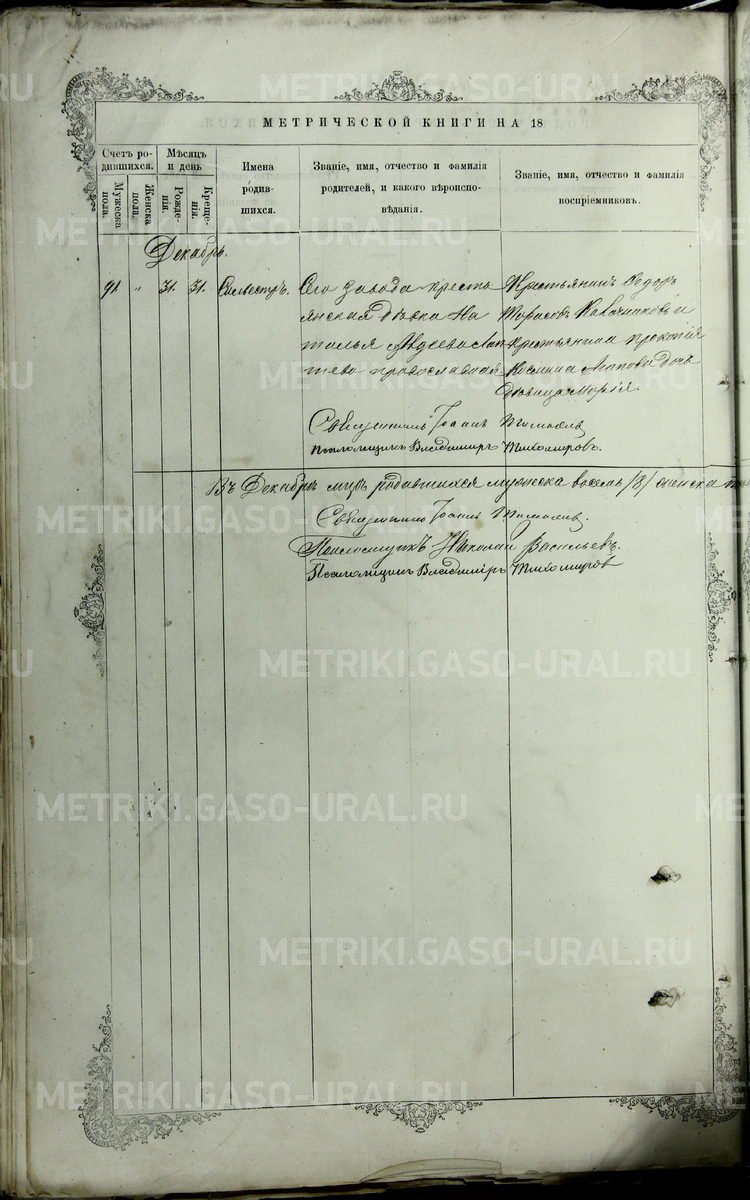 МЕТРИЧЕСКОЙ КНИГИ НА 18
Счетъ ро-
дившихся.
Мужеска
пола.
Женска
пола.
Мѣсяцъ
и день
Рожде-
нія.
Креще-
нія.
Имена
родив-
шихся.
Званіе, имя, отчество и фамилія
родителей, и какого вѣроиспо-
вѣданія.
Званіе, имя, отчество и фамилія
воспріемниковъ.
Декабрь.
91 " 31. 31. Сильвестръ.
Сего завода кресть
янская дѣвка На
талья Авдеева
православная
Крестьянинъ Ѳедоръ
Тарасовъ и
крестьянина Прокопія
Космина дочь
дѣвица Марія.
Священникъ Іоаннъ
Псаломщикъ Владимиръ Тихомировъ.
Въ Декабрѣ мцѣ родившихся мужеска восемь /8/ женска
Священникъ Іоаннъ
Псаломщикъ Николай Васильевъ.
Псаломщикъ Владимиръ Тихомировъ
METRIKI.GASO-URAL.RU